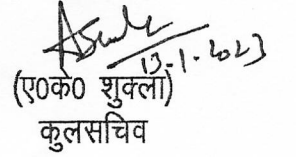 13-1-2023
(ए0के0 शुक्ला)
कुलसचिव